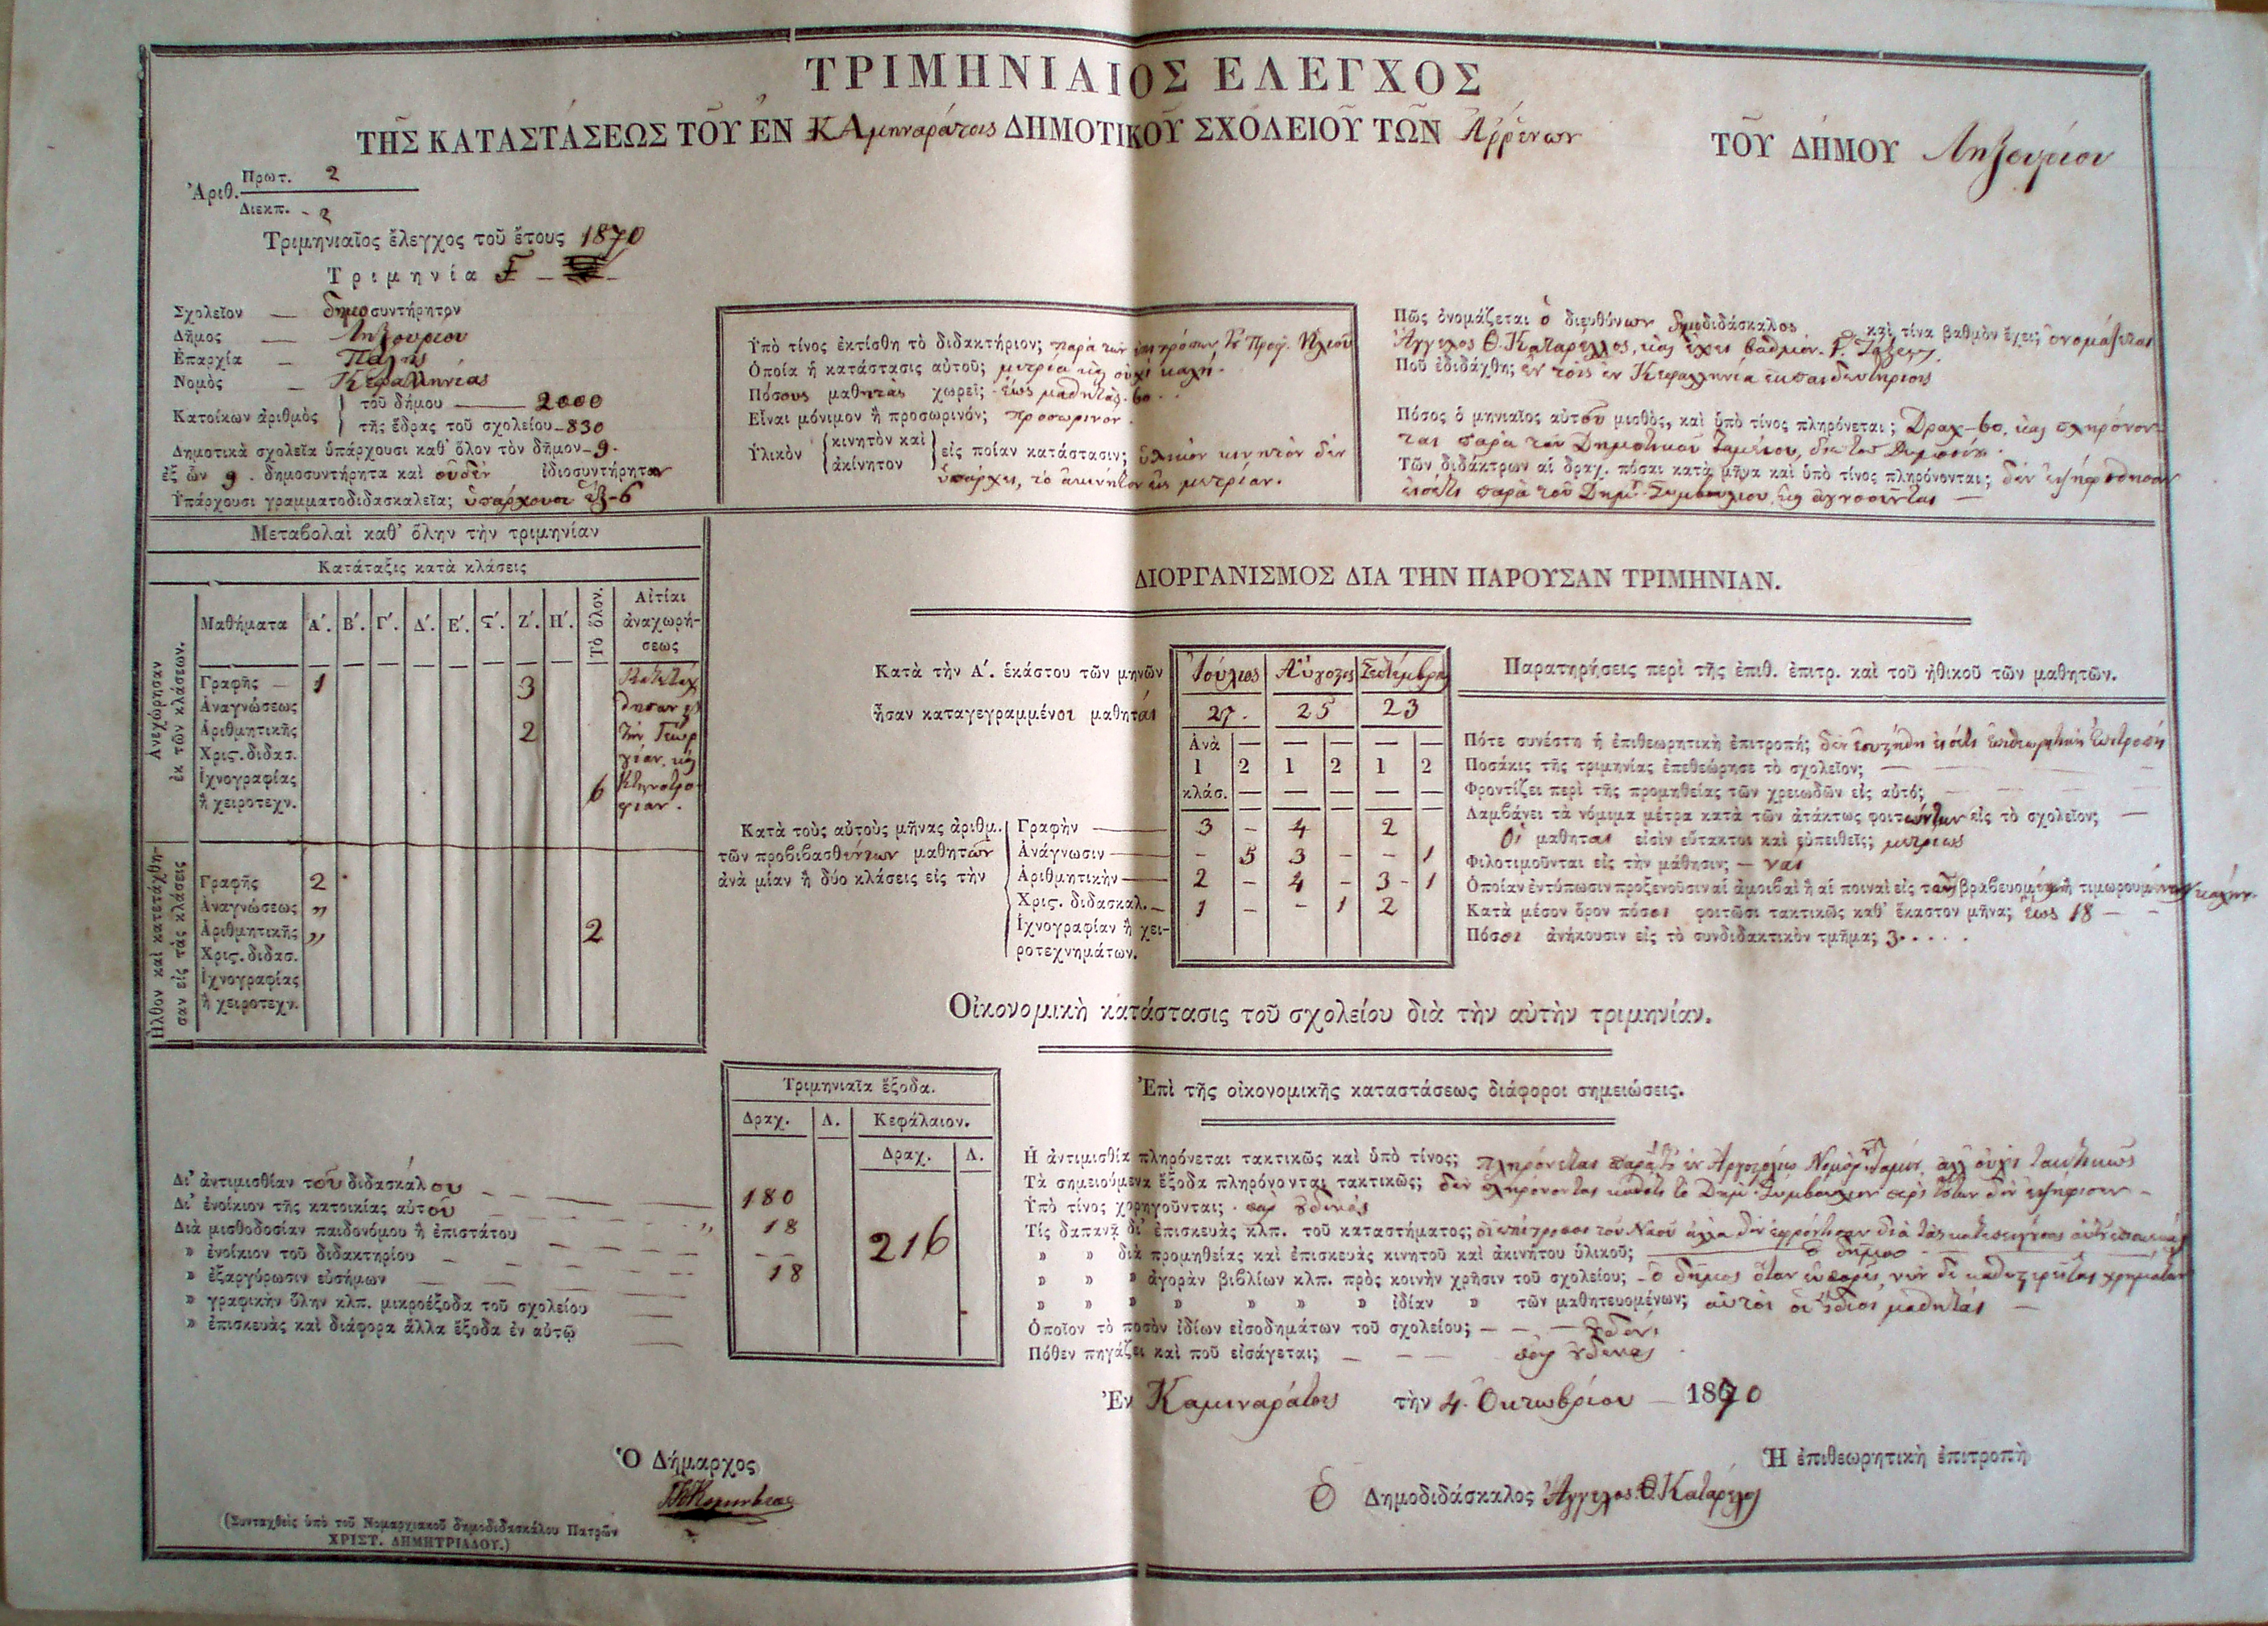 ΤΡΙΜΗΝΙΑΙΟΣ ΕΛΕΓΧΟΣ
ΤΗΣ ΚΑΤΑΣΤΑΣΕΩΣ ΤΟΥ ΕΝ ΚΑμηναράτοις ΔΗΜΟΤΙΚΟΥ ΣΧΟΛΕΙΟΥ ΤΩΝ Ἀῤῥένων ΤΟΥ ΔΗΜΟΥ Ληξουρίου
Ἀριθ. Πρωτ. 2
Διεκπ. 2
Τριμηνιαῖος ἔλεγχος τοῦ ἔτους 1870
Τριμηνία
Σχολεῖον — δημοσυντήρητον
Δῆμος — Ληξουρίου
Ἐπαρχία — Πάλης
Νομὸς — Κεφαλληνίας
Κατοίκων ἀριθμὸς τοῦ δήμου — 2000
τῆς ἕδρας τοῦ σχολείου - 830
Δημοτικὰ σχολεῖα ὑπάρχουσι καθ' ὅλον τὸν δῆμον - 9.
ἐξ ὧν 9. δημοσυντήρητα καὶ οὐδὲν ἰδιοσυντήρητον
Ὑπάρχουσι γραμματοδιδασκαλεῖα; ὑπάρχουσι ἓξ - 6
Ὑπὸ τίνος ἐκτίσθη τὸ διδακτήριον; παρὰ τῶν ἐπιτρόπων Προφ. Ἠλιοῦ
Ὁποία ἡ κατάστασις αὐτοῦ; μετρία καὶ οὐχὶ καλή.
Πόσους μαθητὰς χωρεῖ; ἕως μαθητὰς 60
Εἶναι μόνιμον ἢ προσωρινόν; προσωρινόν.
Ὑλικὸν κινητὸν καὶ ἀκίνητον εἰς ποίαν κατάστασιν; ὑλικὸν κινητὸν δὲν
ὑπάρχει, τὸ ἀκίνητον εἰς μετρίαν.
Πῶς ὀνομάζεται ὁ διευθύνων δημοδιδάσκαλος καὶ τίνα βαθμὸν ἔχει; ὀνομάζεται
Ἄγγελος Θ. Καταρέλλος, καὶ ἔχει βαθμὸν Γ. Τάξεως.
Ποῦ ἐδιδάχθη; ἐν τοῖς ἐν Κεφαλληνίᾳ ἐκπαιδευτηρίοις
Πόσος ὁ μηνιαῖος αὐτοῦ μισθὸς, καὶ ὑπὸ τίνος πληρόνεται; Δραχ - 60, καὶ πληρόνον-
ται παρὰ τοῦ Δημοτικοῦ Ταμείου,
Τῶν διδάκτρων αἱ δραχ. πόσαι κατὰ μῆνα καὶ ὑπὸ τίνος πληρόνονται; δὲν ἐψηφίσθησαν
εἰσέτι παρὰ τοῦ Δημ. Συμβουλίου, καὶ ἀγνοοῦνται —
Μεταβολαὶ καθ' ὅλην τὴν τριμηνίαν
Κατάταξις κατὰ κλάσεις
Ἀνεχώρησαν ἐκ τῶν κλάσεων.
Μαθήματα Α'. Β'. Γ'. Δ'. Ε'. ϛ'. Ζ'. Η'. Τὸ ὅλον. Αἰτίαι ἀναχωρή-σεως
Γραφῆς — 1 3
Ἀναγνώσεως
Ἀριθμητικῆς 2
Χρις. διδασ.
Ἰχνογραφίας
ἢ χειροτεχν. 6
τὴν Γεωρ
γίαν, καὶ
κτηνοτρο
φίαν.
Ἦλθον καὶ κατετάχθη-σαν εἰς τὰς κλάσεις
Γραφῆς 2
Ἀναγνώσεως „
Ἀριθμητικῆς „ 2
Χρις. διδασ.
Ἰχνογραφίας
ἢ χειροτεχν.
ΔΙΟΡΓΑΝΙΣΜΟΣ ΔΙΑ ΤΗΝ ΠΑΡΟΥΣΑΝ ΤΡΙΜΗΝΙΑΝ.
Κατὰ τὴν Α'. ἑκάστου τῶν μηνῶν Ἰούλιος Αὔγουστος Σεπτέμβριος
ἦσαν καταγεγραμμένοι μαθηταί 27. 25 23
Ἀνὰ — — — — —
1 2 1 2 1 2
κλάσ. — — — — —
Κατὰ τοὺς αὐτοὺς μῆνας ἀριθμ.
τῶν προβιβασθέντων μαθητῶν
ἀνὰ μίαν ἢ δύο κλάσεις εἰς τὴν
Γραφὴν — 3 - 4 2
Ἀνάγνωσιν — - 5 3 - - 1
Ἀριθμητικὴν — 2 - 4 - 3 - 1
Χρις. διδασκαλ. — 1 - - 1 2
Ἰχνογραφίαν ἢ χει-
ροτεχνημάτων.
Παρατηρήσεις περὶ τῆς ἐπιθ. ἐπιτρ. καὶ τοῦ ἠθικοῦ τῶν μαθητῶν.
Πότε συνέστη ἡ ἐπιθεωρητικὴ ἐπιτροπή; δὲν ἐσυστήθη εἰσέτι ἐπιθεωρητικὴ ἐπιτροπή
Ποσάκις τῆς τριμηνίας ἐπεθεώρησε τὸ σχολεῖον; —
Φροντίζει περὶ τῆς προμηθείας τῶν χρειωδῶν εἰς αὐτό; —
Λαμβάνει τὰ νόμιμα μέτρα κατὰ τῶν ἀτάκτως φοιτώντων εἰς τὸ σχολεῖον; —
Οἱ μαθηταὶ εἰσὶν εὔτακτοι καὶ εὐπειθεῖς; μετρίως
Φιλοτιμοῦνται εἰς τὴν μάθησιν; — ναί
Ὁποίαν ἐντύπωσιν προξενοῦσιν αἱ ἀμοιβαὶ ἢ αἱ ποιναὶ εἰς τοὺς βραβευομένους ἢ τιμωρουμένους; καλήν.
Κατὰ μέσον ὅρον πόσοι φοιτῶσι τακτικῶς καθ' ἕκαστον μῆνα; ἕως 18 - -
Πόσοι ἀνήκουσιν εἰς τὸ συνδιδακτικὸν τμῆμα; 3.....
Οἰκονομικὴ κατάστασις τοῦ σχολείου διὰ τὴν αὐτὴν τριμηνίαν.
Τριμηνιαῖα ἔξοδα.
Δραχ. Λ. Κεφάλαιον.
Δραχ. Λ.
Δι' ἀντιμισθίαν τοῦ διδασκάλου 180
Δι' ἐνοίκιον τῆς κατοικίας αὐτοῦ „ 18
Διὰ μισθοδοσίαν παιδονόμου ἢ ἐπιστάτου 216
» ἐνοίκιον τοῦ διδακτηρίου 18
» ἐξαργύρωσιν εὐσήμων
» γραφικὴν ὕλην κλπ. μικροέξοδα τοῦ σχολείου
» ἐπισκευὰς καὶ διάφορα ἄλλα ἔξοδα ἐν αὐτῷ
Ἐπὶ τῆς οἰκονομικῆς καταστάσεως διάφοροι σημειώσεις.
Ἡ ἀντιμισθία πληρόνεται τακτικῶς καὶ ὑπὸ τίνος; πληρόνεται παρὰ τοῦ ἐν Ἀργοστολίῳ ἀλλ' οὐχὶ τακτικῶς
Τὰ σημειούμενα ἔξοδα πληρόνονται τακτικῶς; δὲν πληρόνονται καθότι τὸ Δημ. Συμβούλιον δὲν ἐψήφισεν -
Ὑπὸ τίνος χορηγοῦνται; παρ' οὐδενός
Τίς δαπανᾷ δι' ἐπισκευὰς κλπ. τοῦ καταστήματος; οἱ ἐπίτροποι τοῦ Ναοῦ ἀλλὰ δὲν ἐφρόντισαν διὰ τὰς
» » διὰ προμηθείας καὶ ἐπισκευὰς κινητοῦ καὶ ἀκινήτου ὑλικοῦ; — ὁ δῆμος
» » » ἀγορὰν βιβλίων κλπ. πρὸς κοινὴν χρῆσιν τοῦ σχολείου; - ὁ δῆμος ὅταν εὐπορεῖ, νῦν δὲ καθυστερεῖται χρημάτων
» » » » » » » ἰδίαν » τῶν μαθητευομένων; αὐτοὶ οἱ ἴδιοι μαθηταί —
Ὁποῖον τὸ ποσὸν ἰδίων εἰσοδημάτων τοῦ σχολείου; — οὐδέν,
Πόθεν πηγάζει καὶ ποῦ εἰσάγεται; — παρ' οὐδενός
Ἐν Καμιναράτοις τὴν 4. Ὀκτωβρίου — 1870
Ὁ Δήμαρχος
Ἡ ἐπιθεωρητικὴ ἐπιτροπὴ
Ὁ Δημοδιδάσκαλος Ἄγγελος Θ. Καταρέλος
(Συνταχθεὶς ὑπὸ τοῦ Νομαρχιακοῦ δημοδιδασκάλου Πατρῶν
ΧΡΙΣΤ. ΔΗΜΗΤΡΙΑΔΟΥ.)